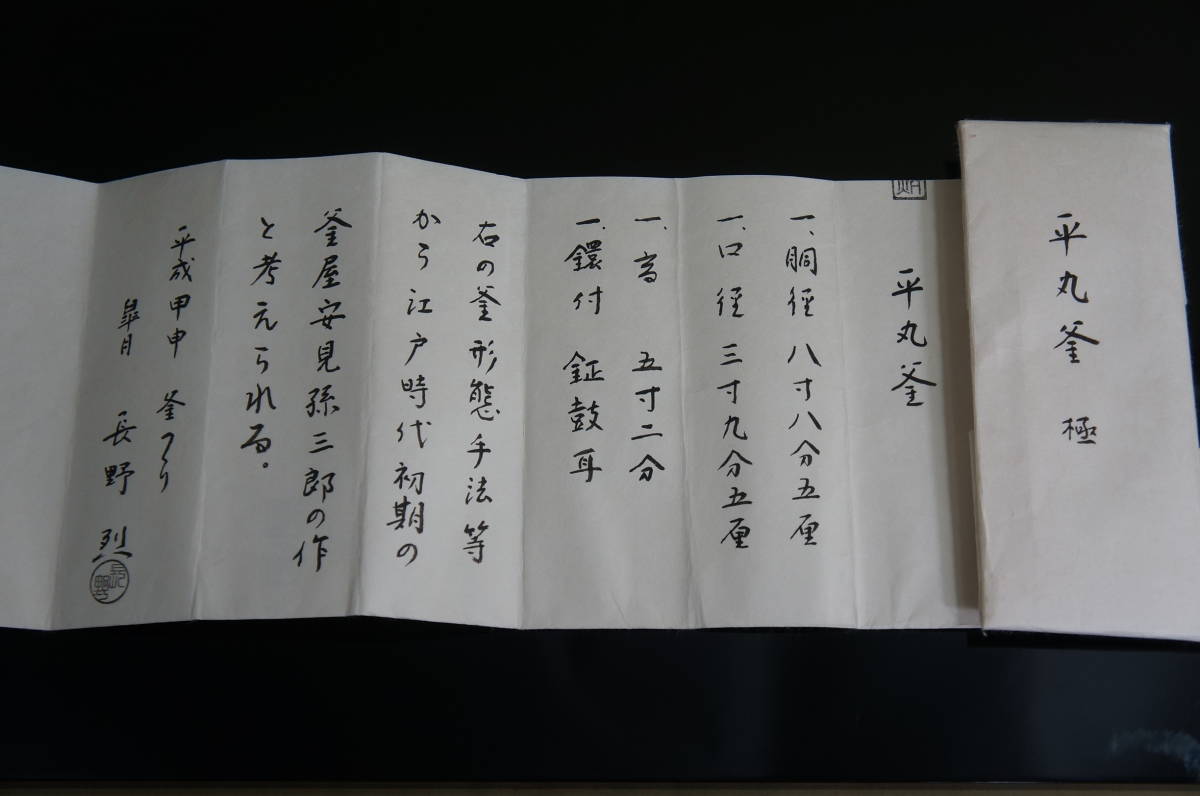 平丸釜 極
平丸釜
一、胴径 八寸八分五厘
一、口径 三寸九分五厘
一、高 五寸二分
一、鐶付 鉦鼓耳
右の釜形態手法等
から江戸時代初期の
釜屋安見孫三郎の作
と考えられる。
平成甲申 釜つくり
皐月 長野 烈
長野